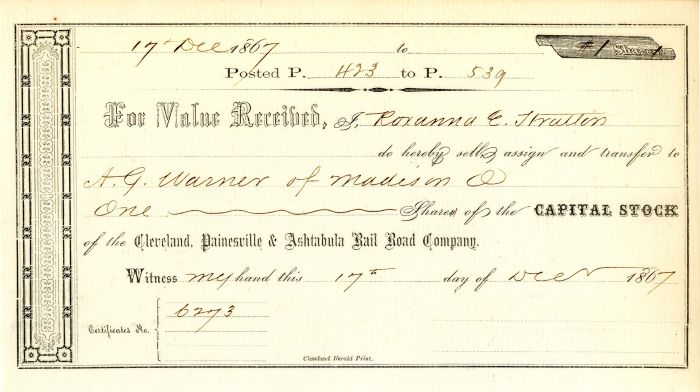 17 Dec 1867 to
#1 Shares 1
Posted P. 423 to P. 539
For Value Received, I, Roxanna E. Stratton
do hereby sell, assign and transfer to
A. G. Warner of Madison O
One Shares of the CAPITAL STOCK
of the Cleveland, Painesville & Ashtabula Rail Road Company.
Witness my hand this 17th day of Dec 1867
6273
Certificates No.
Cleveland Herald Print.